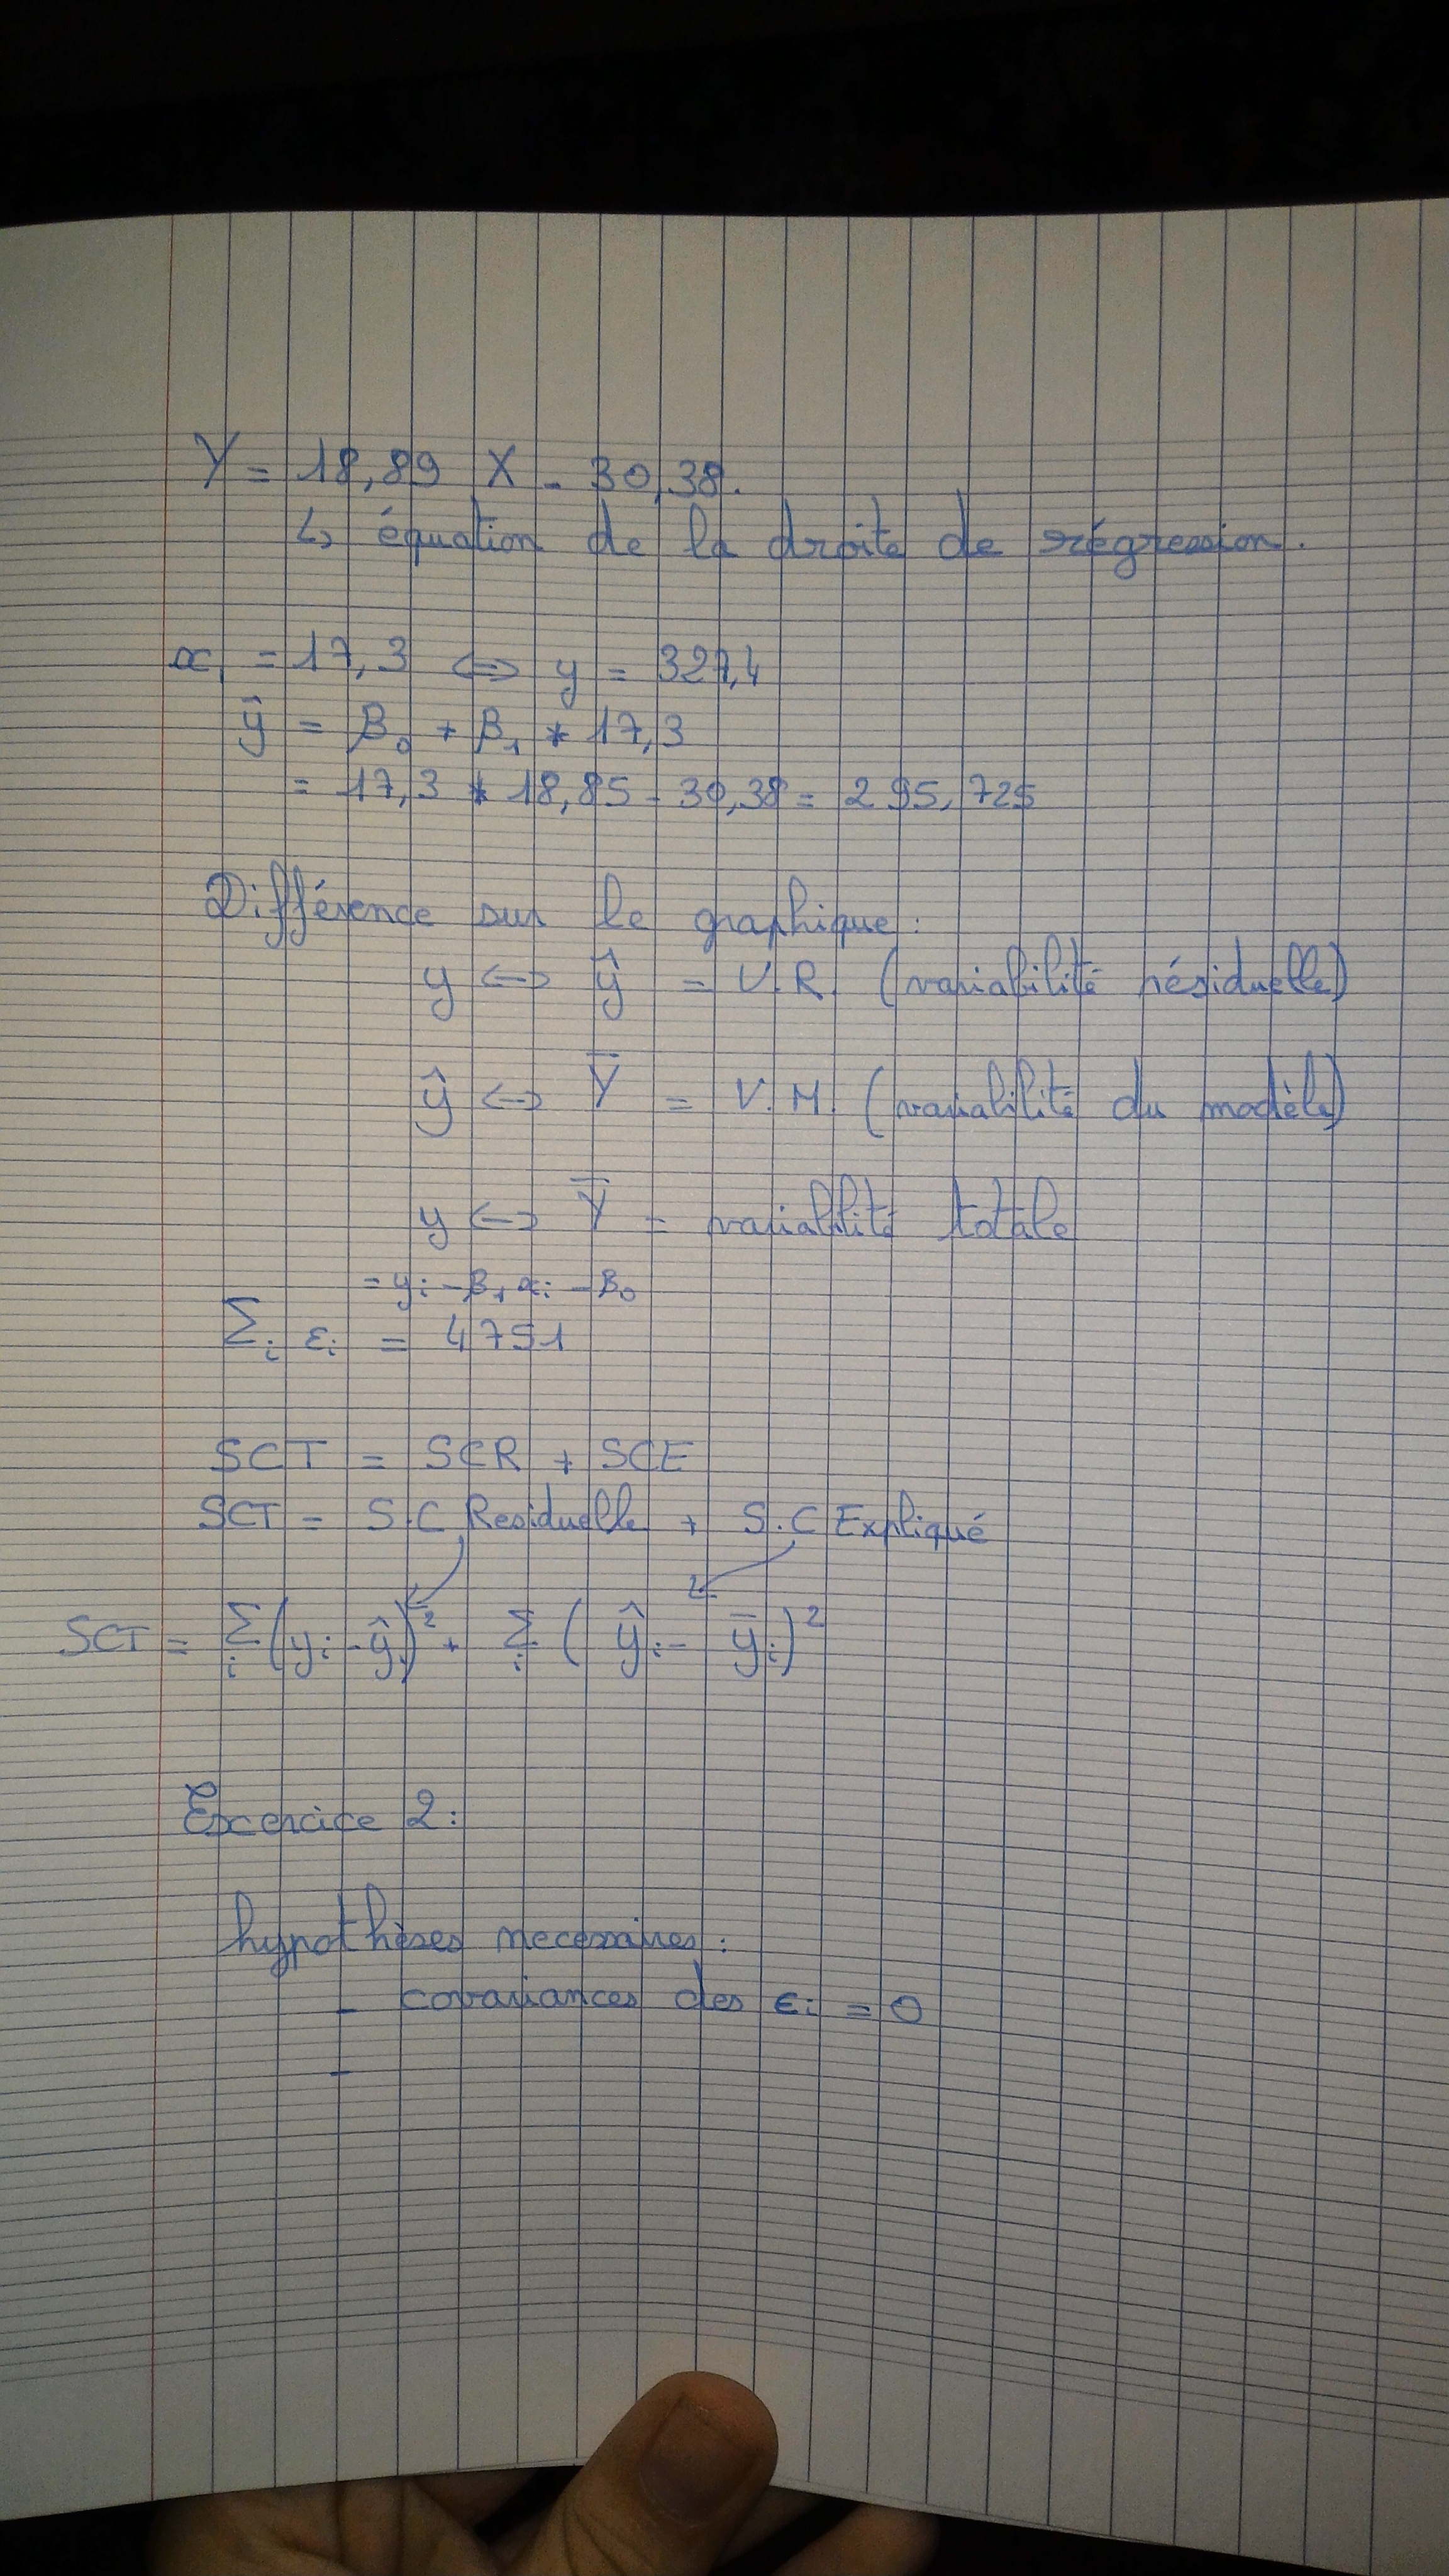 Y = 18,89 X - 30,38.
↳ équation de la droite de régression.
x₁ = 17,3 <=> y = 327,4
ŷ = β₀ + β₁ * 17,3
= 17,3 * 18,85 - 30,38 = 295,725
Différence sur le graphique :
y <-> ŷ = V.R. (variabilité résiduelle)
ŷ <-> Y̅ = V.M. (variabilité du modèle)
y <-> Y̅ = variabilité totale
= yᵢ - β₁xᵢ - β₀
Σᵢ εᵢ = 4751
SCT = SCR + SCE
SCT = S.C Residuelle + S.C Expliqué
SCT = Σᵢ (yᵢ - ŷ)² + Σᵢ (ŷᵢ - y̅ᵢ)²
Excercice 2 :
hypothèses necessaires :
- covariances des εᵢ = 0
-